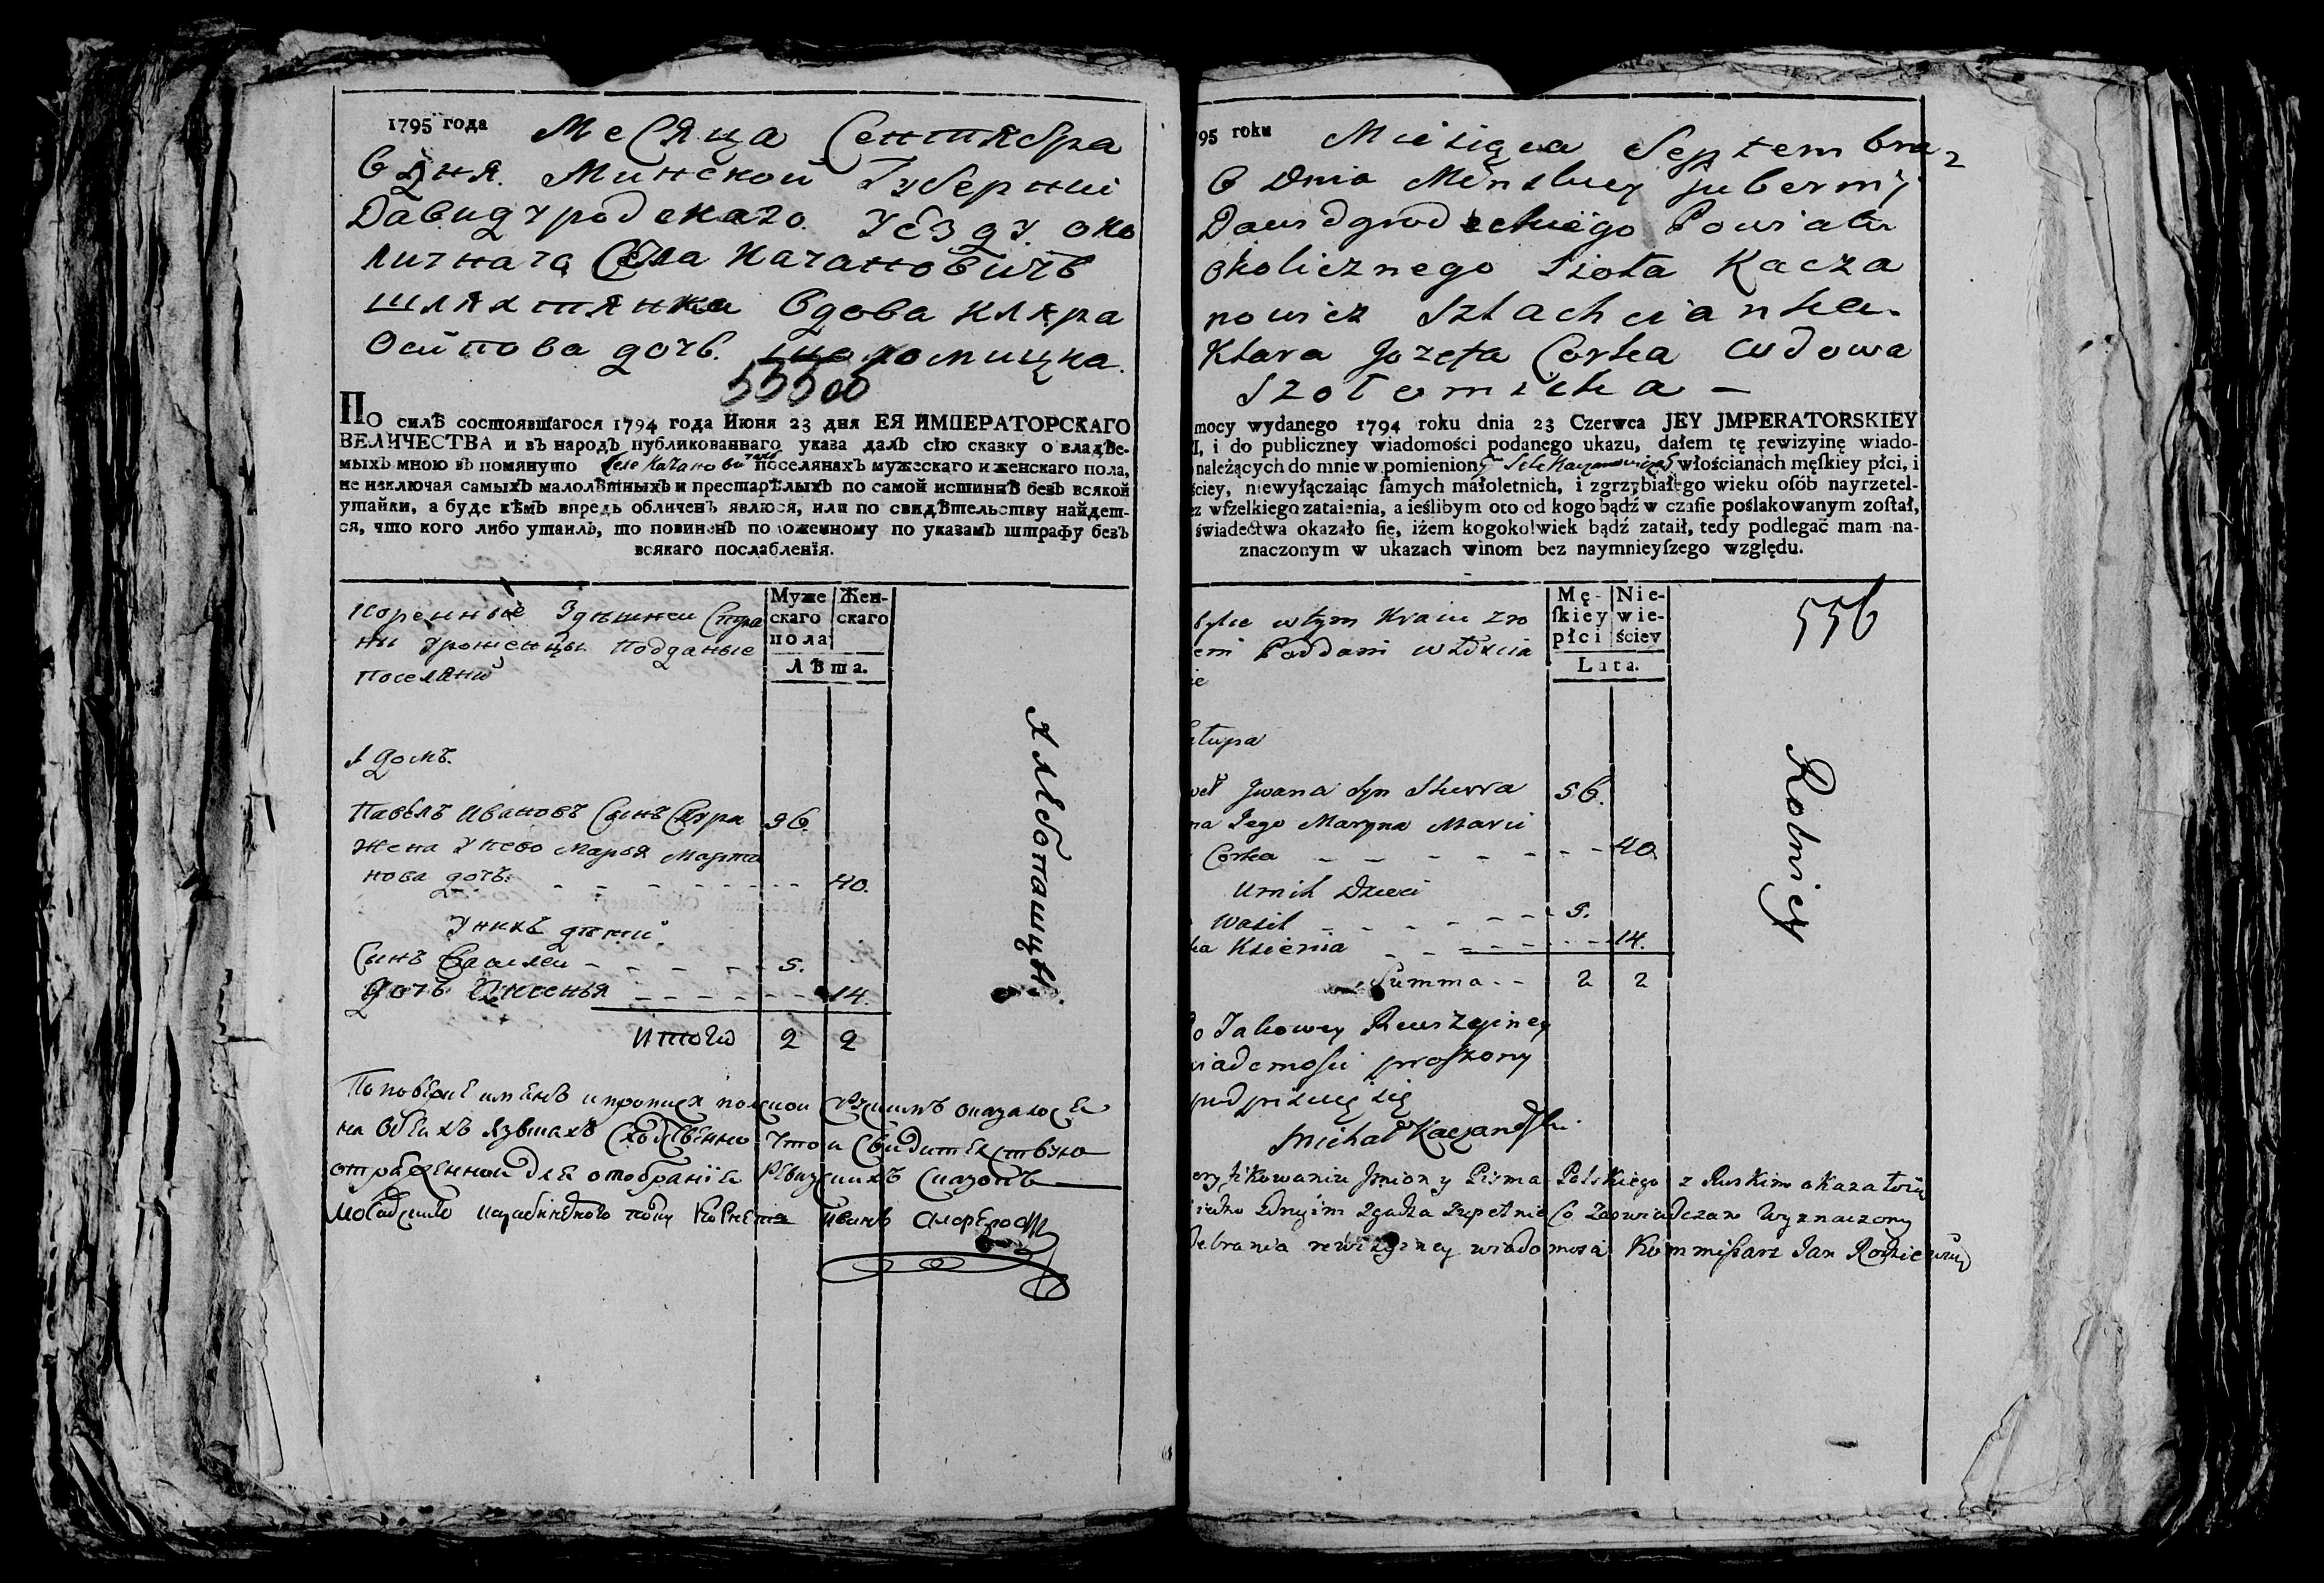 1795 года Месяца Сентября
6 дня. Минской Губернии
Давидгродскаго. Уезду. око
личнага Села Качановичъ
шляхтянка Вдова Кляра
Осипова дочь. Шоломицка.
По силѣ состоявшагося 1794 года Июня 23 дня ЕЯ ИМПЕРАТОРСКАГО
ВЕЛИЧЕСТВА и въ народъ публикованнаго указа далъ сію сказку о владѣе-
мыхъ мною въ помянуто Селе Качановичахъ поселянахъ мужескаго и женскаго пола,
не изключая самыхъ малолѣтныхъ и престарѣлыхъ по самой истиннѣ безъ всякой
утайки, а буде кѣмъ впредь обличенъ явлюся, или по свидѣтельству найдет-
ся, что кого либо утаилъ, то повиненъ положенному по указамъ штрафу безъ
всякаго послабленія.
Муже
скаго
пола
Жен-
скаго
Лѣта.
Коренные Здешней Сторо
ны Уроженцы Подданые
Поселяни
1 домъ.
Павелъ Ивановъ Сынъ Скура 56.
Жена у него Марья Марти
нова дочь. 40.
У нихъ дети
Сынъ Василей 5.
Дочь Ксенья 14.
Итого 2 2
Хлебопашцы.
на обеихъ языкахъ Сходственно что и Свидетельствую
отряженной для отобрания Ревизскихъ Сказокъ
Иванъ
95 roku Miesiąca Septembra
6 Dnia Minskiey Guberniy
Dawidgrodeckiego Powiatu
Okolicznego Sioła Kacza
nowicz Szlachcianka.
Kłara Jozefa Corka Wdowa
Szołomicka —
mocy wydanego 1794 roku dnia 23 Czerwca JEY JMPERATORSKIEY
I, i do publiczney wiadomości podanego ukazu, dałem tę rewizyinę wiado-
należących do mnie w pomienion Sele Kaczanowiczach włościanach męſkiey płci, i
ściey, niewyłączaiąc ſamych małoletnich, i zgrzybiałego wieku oſób nayrzetel-
z wſzelkiego zataienia, a ieślibym oto od kogo bądź w czaſie poślakowanym zoſtał,
świadectwa okazało ſię, iżem kogokolwiek bądź zataił, tedy podlegać mam na-
znaczonym w ukazach winom bez naymnieyſzego względu.
Mę-
ſkiey
płci
Nie-
wie-
ściey
Lata.
556
w tym Kraiu zro
Poddani włościa
ie
Iwana Syn Skurra 56.
na Jego Maryna Marci
Corka 40
U nich Dzieci
Wasil 5.
ka Ksienia 14.
Summa 2 2
Robnicy
o Takowey Rewizyiney
wiadomości proszony
podpisuię się
Michał Kaczanoſki.
Jmion y Pisma Polskiego z Ruskim okazało się
iedno z drugim zgadza zupełnie Co Zaswiadczam Wyznaczony
debrania rewizyiney wiadomosci Kommiſsarz Jan